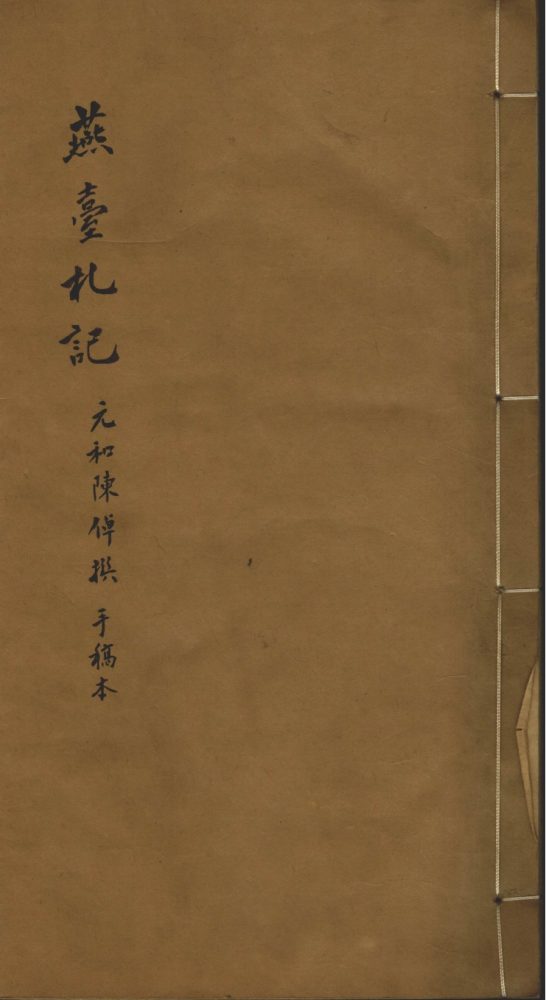 燕臺札記
元和陳倬撰 手稿本